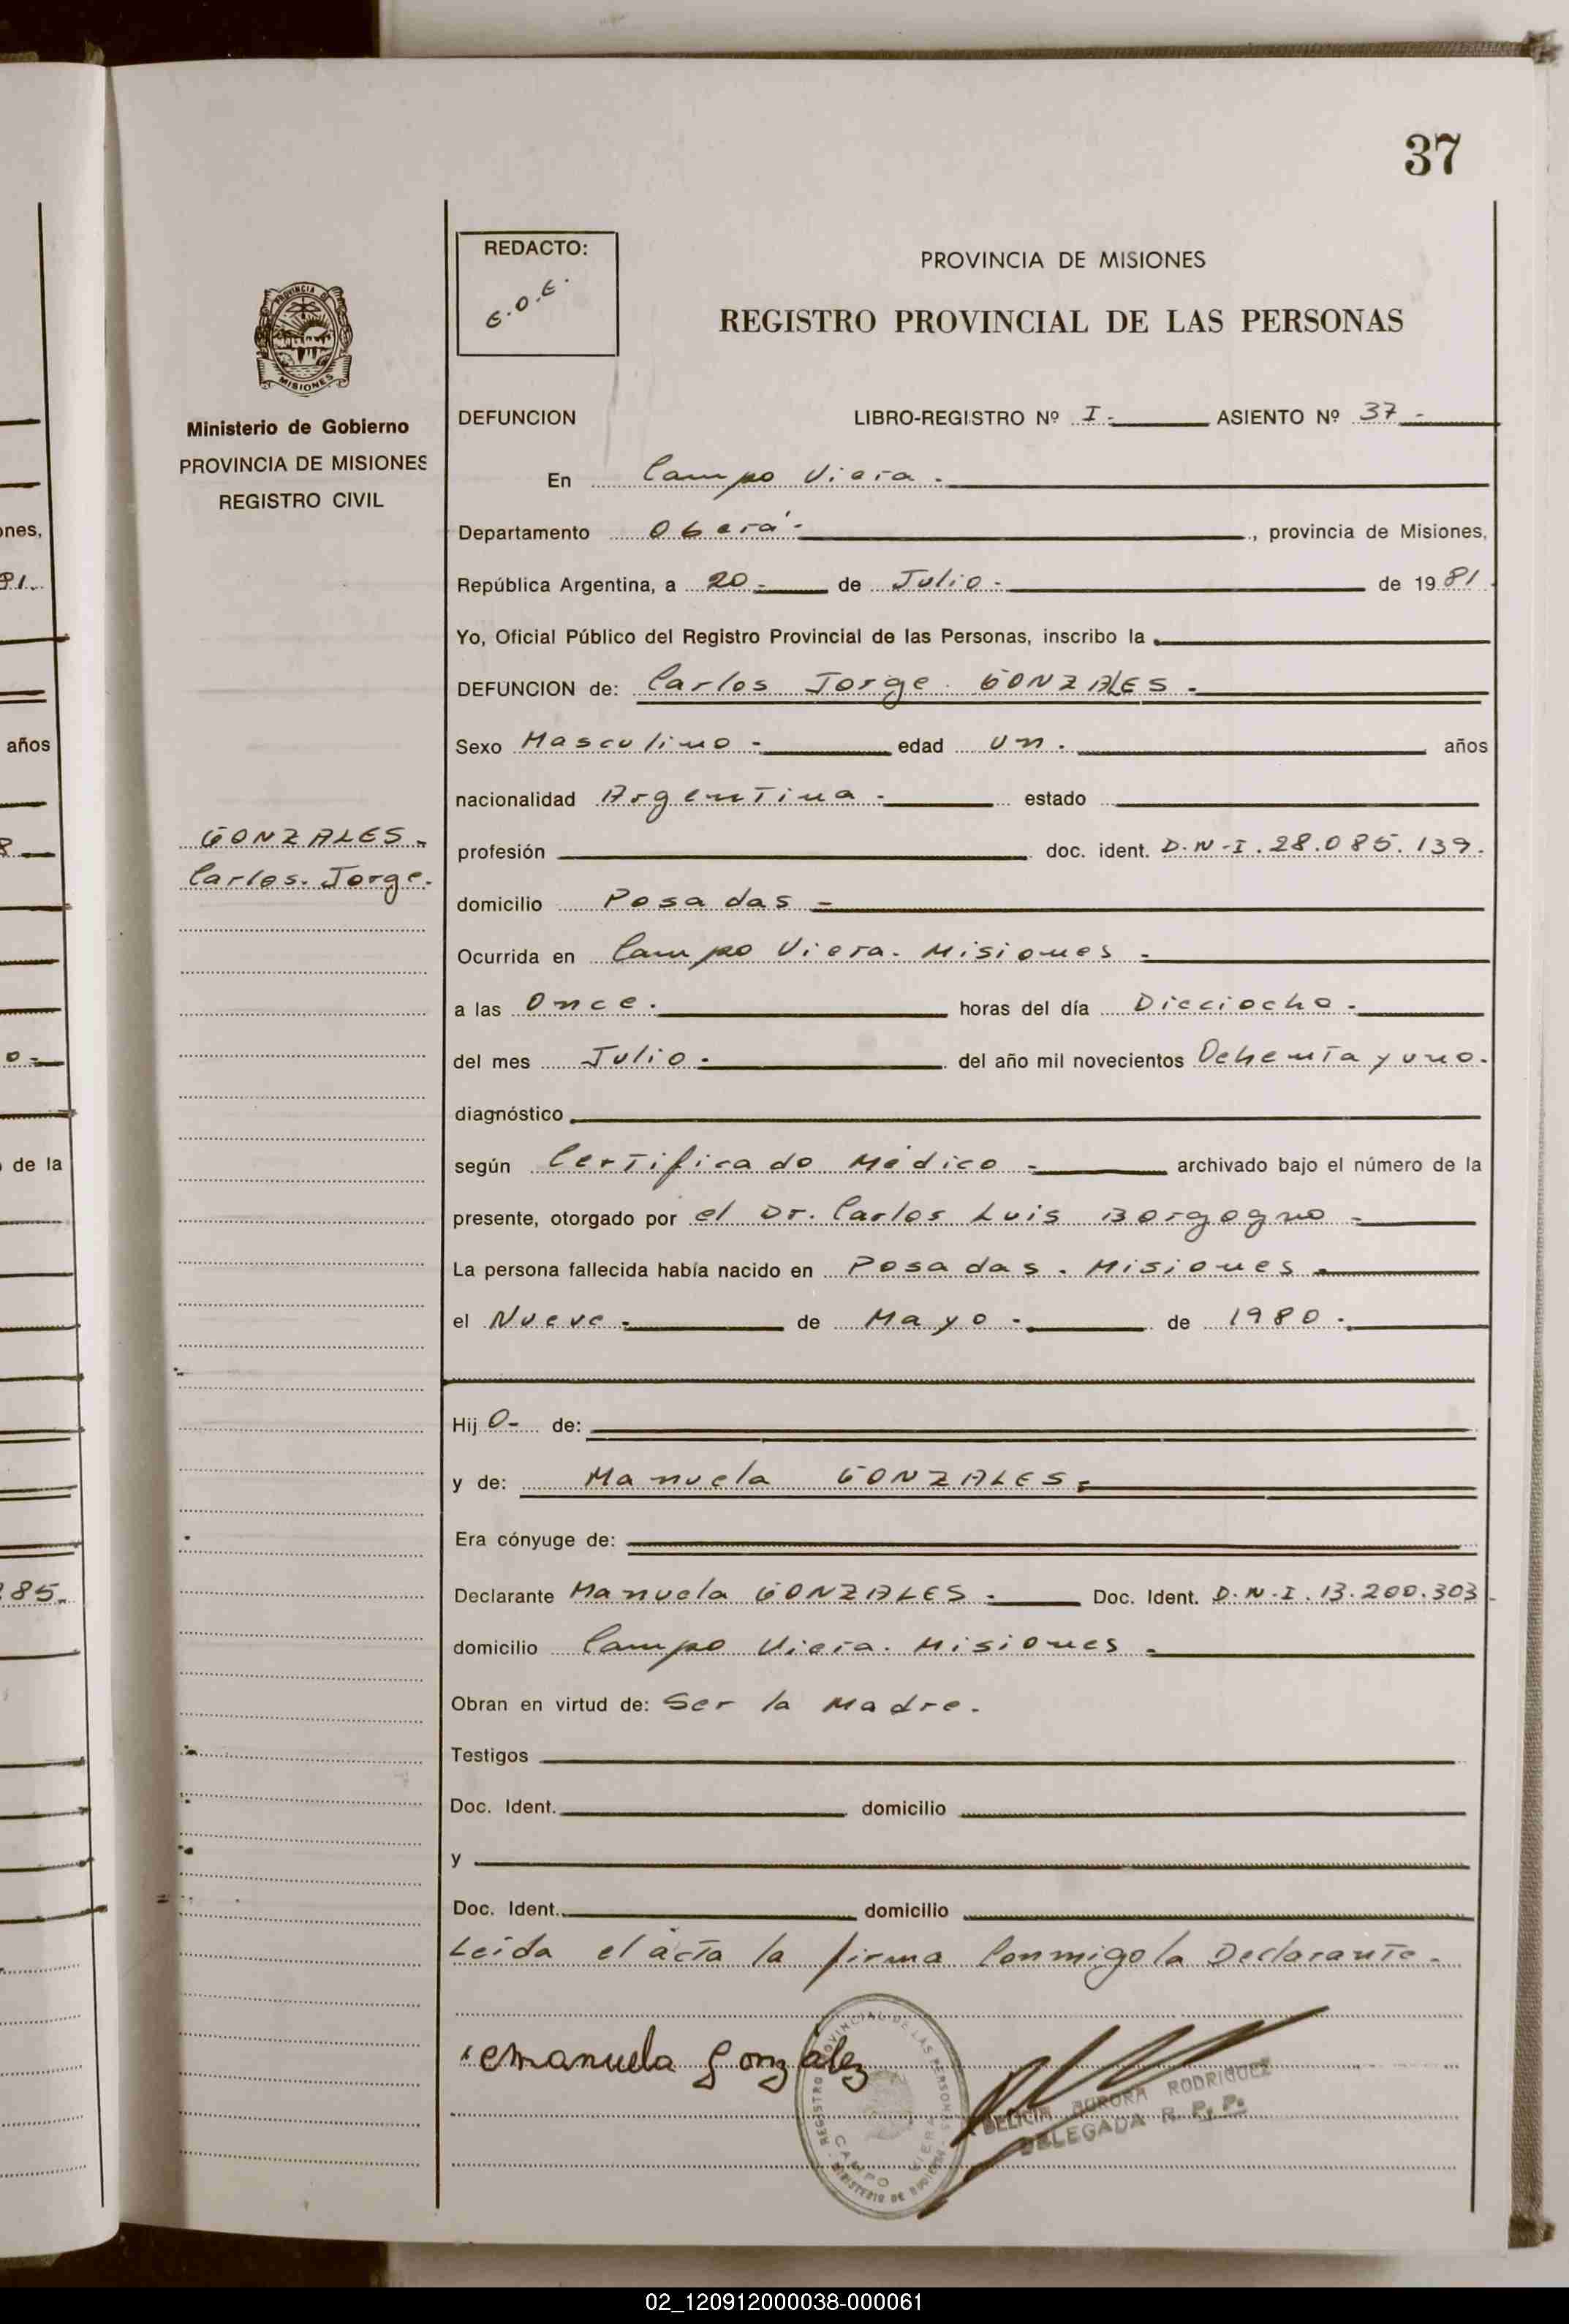 37
REDACTO:
E.O.E.
PROVINCIA DE MISIONES
REGISTRO PROVINCIAL DE LAS PERSONAS
PROVINCIA DE
MISIONES
Ministerio de Gobierno
PROVINCIA DE MISIONES
REGISTRO CIVIL
GONZALES.-
Carlos. Jorge.
DEFUNCION LIBRO-REGISTRO Nº I.- ASIENTO Nº 37.-
En Campo Viera.-
Departamento Oberá.- , provincia de Misiones,
República Argentina, a 20.- de Julio.- de 1981.
Yo, Oficial Público del Registro Provincial de las Personas, inscribo la
DEFUNCION de: Carlos Jorge GONZALES.-
Sexo Masculino.- edad un.- años
nacionalidad Argentina.- estado
profesión doc. ident. D.N.I. 28.085.139.
domicilio Posadas.-
Ocurrida en Campo Viera. Misiones.-
a las Once.- horas del día Dieciocho.-
del mes Julio.- del año mil novecientos Ochenta y uno.-
diagnóstico
según Certificado Médico.- archivado bajo el número de la
presente, otorgado por el Dr. Carlos Luis Borgogno.-
La persona fallecida había nacido en Posadas. Misiones.-
el Nueve.- de Mayo.- de 1980.-
Hijo- de:
y de: Manuela GONZALES.-
Era cónyuge de:
Declarante Manuela GONZALES.- Doc. Ident. D.N.I. 13.200.303
domicilio Campo Viera. Misiones.-
Obran en virtud de: Ser la Madre.-
Testigos
Doc. Ident. domicilio
y
Doc. Ident. domicilio
Leída el acta la firma Conmigo la Declarante.-
manuela gonzalez
REGISTRO PROVINCIAL DE LAS PERSONAS
CAMPO VIERA
DELICIA AURORA RODRIGUEZ
DELEGADA R. P. P.
ones,
81.
años
de la
285.
02_120912000038-000061